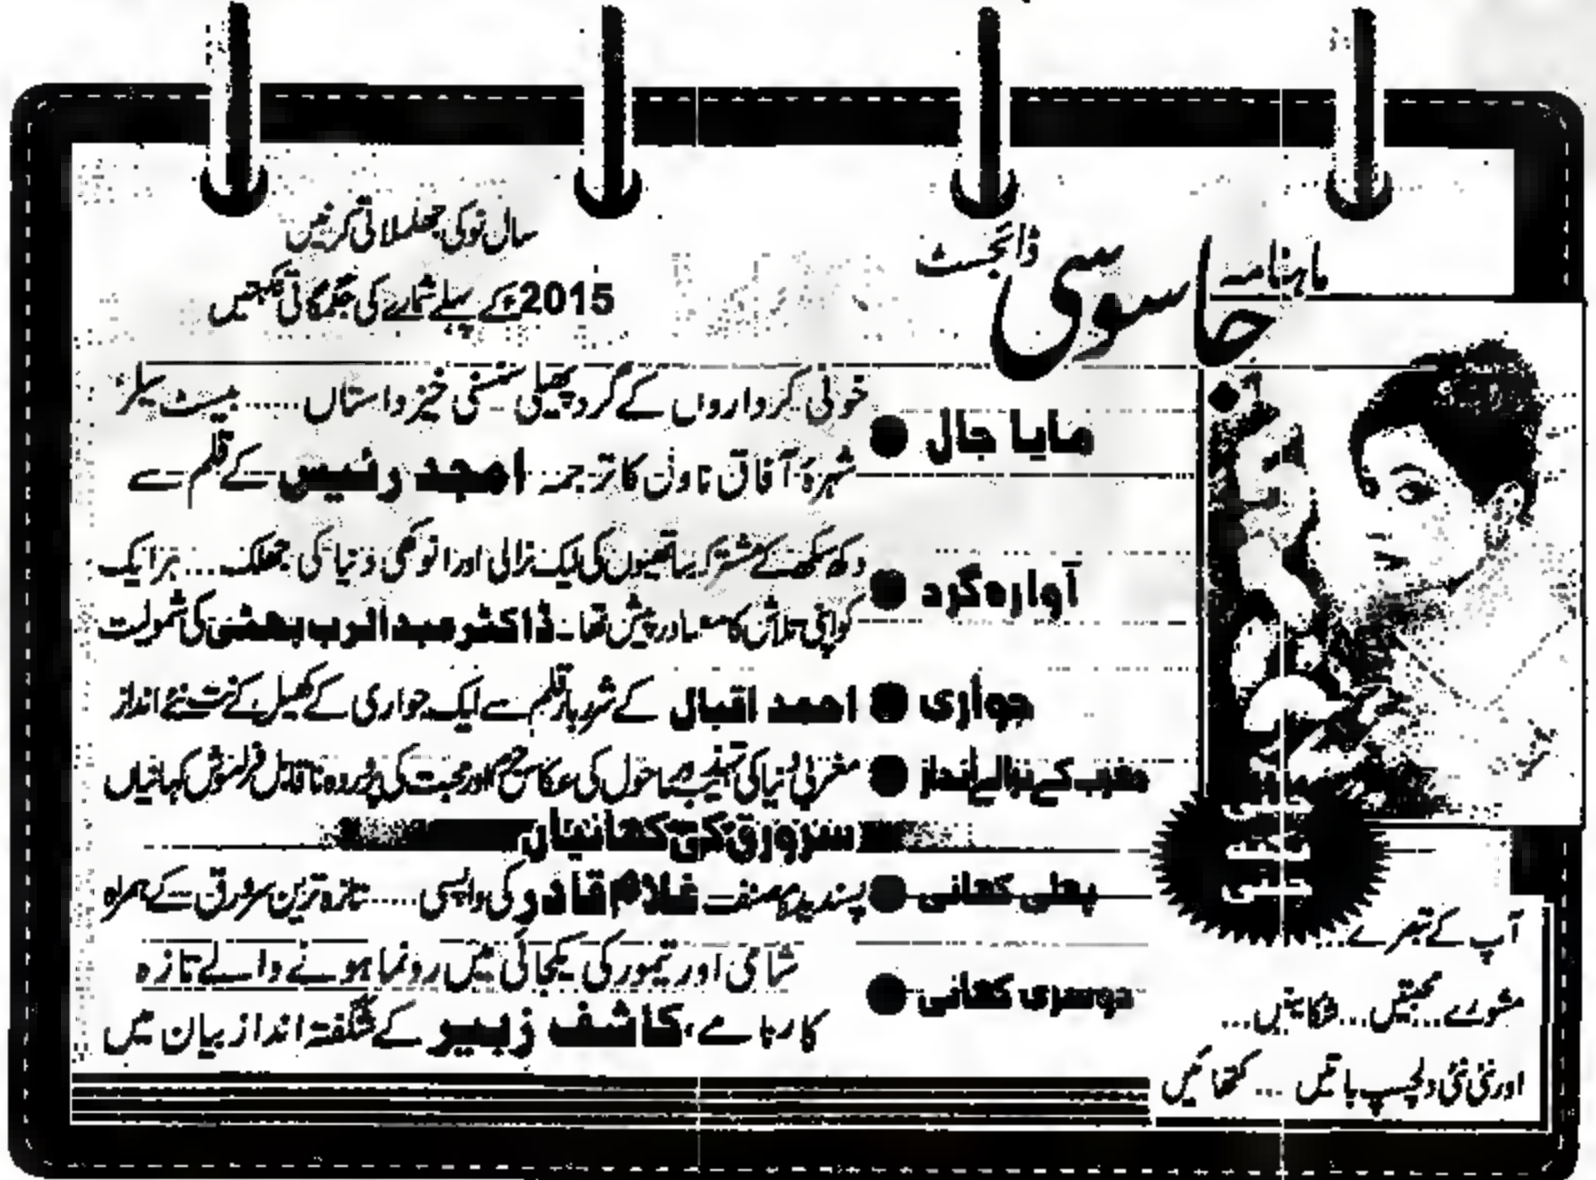 ماہنامہ جاسوسی ڈائجسٹ
سال نو کی جھلملاتی کرنیں
2015ء کے پہلے شمارے کی جگمگاتی نکہتیں
مایا جال ● خونی کرداروں کے گرد پھیلی سنسنی خیز داستاں ..... بیسٹ سیلر
شہرۂ آفاق ناول کا ترجمہ امجد رئیس کے قلم سے
آوارہ گرد ● دکھ سکھ کے مشترک ساتھیوں کی ایک نرالی اور انوکھی دنیا کی جھلک... ہر ایک
کو اپنی تلاش کا درپیش تھا۔ ڈاکٹر عبدالرب بھٹی کی شمولیت
جواری ● احمد اقبال کے قلم سے ایک جواری کے کھیل کے نت نئے انداز
مغرب کے نرالے انداز ● مغربی دنیا کی ماحول کی عکاس اور محبت کی ناقابل فراموش کہانیاں
سرورق کی کہانیاں
پہلی کہانی ● پسندیدہ مصنف غلام قادر کی واپسی ..... تازہ ترین سرورق کے ہمراہ
دوسری کہانی ● شامی اور تیمور کی یکجائی میں رونما ہونے والے تازہ
کارنامے، کاشف زبیر کے شگفتہ انداز بیان میں
چینی
نکتہ
چینی
آپ کے تبصرے...
مشورے... محبتیں... شکایتیں...
اور نئی نئی دلچسپ باتیں ... کتھائیں